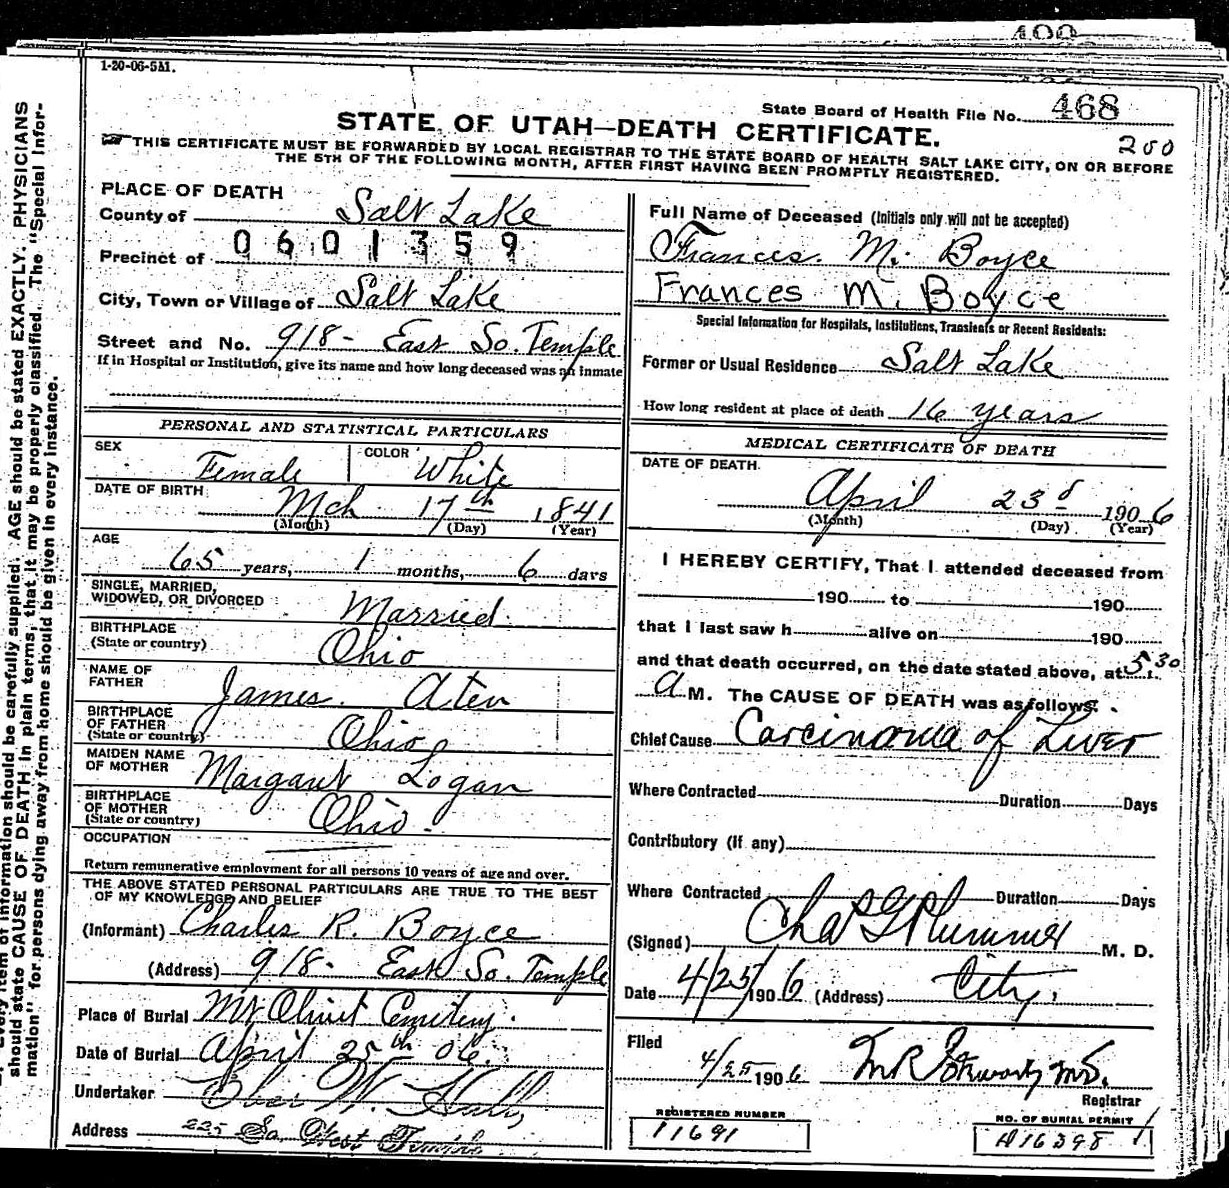 400
1-20-06-5M.
State Board of Health File No. 468
STATE OF UTAH—DEATH CERTIFICATE.
200
THIS CERTIFICATE MUST BE FORWARDED BY LOCAL REGISTRAR TO THE STATE BOARD OF HEALTH SALT LAKE CITY, ON OR BEFORE
THE 5TH OF THE FOLLOWING MONTH, AFTER FIRST HAVING BEEN PROMPTLY REGISTERED.
PLACE OF DEATH
County of Salt Lake
0601359
Precinct of
City, Town or Village of Salt Lake
Street and No. 918- East So. Temple
If in Hospital or Institution, give its name and how long deceased was an inmate
Full Name of Deceased (Initials only will not be accepted)
Frances. M. Boyce
Frances M. Boyce
Special Information for Hospitals, Institutions, Transients or Recent Residents:
Former or Usual Residence Salt Lake
How long resident at place of death 16 years
PERSONAL AND STATISTICAL PARTICULARS
SEX Female COLOR White
DATE OF BIRTH Mch 17th 1841
(Month) (Day) (Year)
AGE
65 years, 1 months, 6 days
SINGLE, MARRIED,
WIDOWED, OR DIVORCED Married.
BIRTHPLACE
(State or country) Ohio
NAME OF
FATHER James. Aten
BIRTHPLACE
OF FATHER
(State or country) Ohio
MAIDEN NAME
OF MOTHER Margaret Logan
BIRTHPLACE
OF MOTHER
(State or country) Ohio.
OCCUPATION
Return remunerative employment for all persons 10 years of age and over.
THE ABOVE STATED PERSONAL PARTICULARS ARE TRUE TO THE BEST
OF MY KNOWLEDGE AND BELIEF
(Informant) Charles R. Boyce
(Address) 918- East So. Temple
Place of Burial Mt Olivet Cemetery.
Date of Burial April 25th 06.
Undertaker Eber W. Hall
Address 225 So. West Temple
MEDICAL CERTIFICATE OF DEATH
DATE OF DEATH.
April 23d 1906
(Month) (Day) (Year)
I HEREBY CERTIFY, That I attended deceased from
190 to 190
that I last saw h alive on 190
and that death occurred, on the date stated above, at 5 30
A M. The CAUSE OF DEATH was as follows:
Chief Cause Carcinoma of Liver
Where Contracted Duration Days
Contributory (if any)
Where Contracted Duration Days
(Signed) Chas G Plummer M. D.
Date 4/25/1906 (Address) City.
Filed
4/25 1906
Registrar
REGISTERED NUMBER
11691
NO. OF BURIAL PERMIT
A16398
Every item of information should be carefully supplied. AGE should be stated EXACTLY. PHYSICIANS
should state CAUSE OF DEATH in plain terms, that it may be properly classified. The "Special Infor-
mation" for persons dying away from home should be given in every instance.